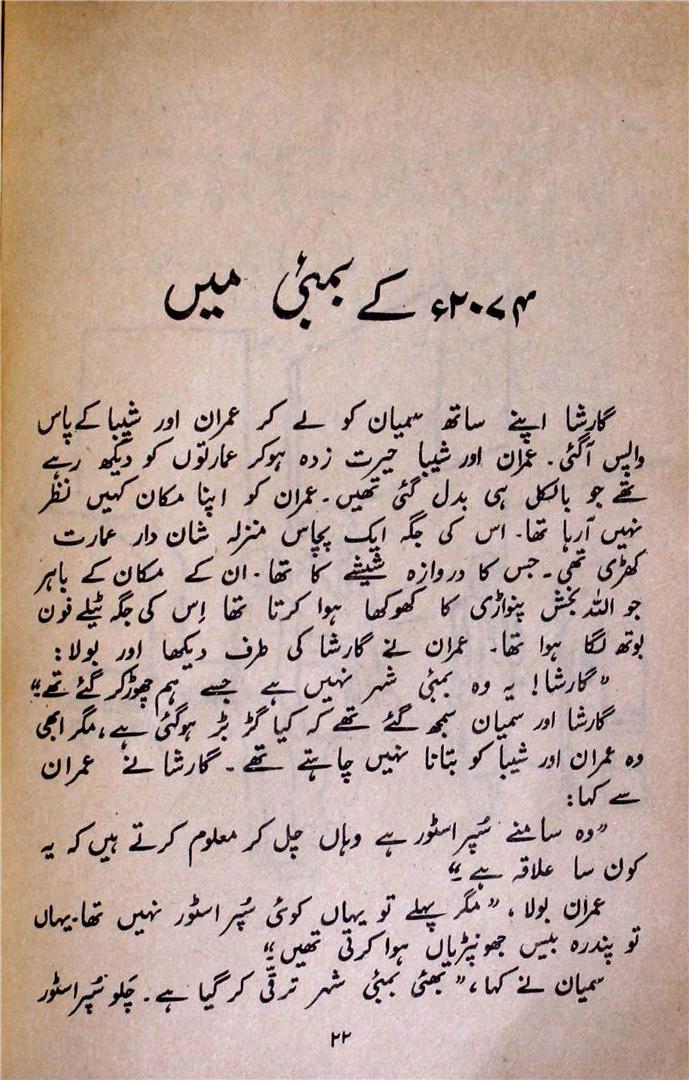 ۲۰۷۴ء کے بمبئی میں
گارشا اپنے ساتھ سمیان کو لے کر عمران اور شیبا کے پاس
واپس آگئی۔ عمران اور شیبا حیرت زدہ ہوکر عمارتوں کو دیکھ رہے
تھے جو بالکل ہی بدل گئی تھیں۔ عمران کو اپنا مکان کہیں نظر
نہیں آرہا تھا۔ اس کی جگہ ایک پچاس منزلہ شان دار عمارت
کھڑی تھی۔ جس کا دروازہ شیشے کا تھا۔ ان کے مکان کے باہر
جو اللہ بخش پنواڑی کا کھوکھا ہوا کرتا تھا اِس کی جگہ ٹیلے فون
بوتھ لگا ہوا تھا۔ عمران نے گارشا کی طرف دیکھا اور بولا:
"گارشا! یہ وہ بمبئی شہر نہیں ہے جسے ہم چھوڑکر گئے تھے"
گارشا اور سمیان سمجھ گئے تھے کہ کیا گڑ بڑ ہوگئی ہے، مگر ابھی
وہ عمران اور شیبا کو بتانا نہیں چاہتے تھے۔ گارشا نے عمران
سے کہا:
"وہ سامنے سُپر اسٹور ہے وہاں چل کر معلوم کرتے ہیں کہ یہ
کون سا علاقہ ہے"
عمران بولا، "مگر پہلے تو یہاں کوئی سُپر اسٹور نہیں تھا۔ یہاں
تو پندرہ بیس جھونپڑیاں ہوا کرتی تھیں"
سمیان نے کہا، "بھئی بمبئی شہر ترقّی کر گیا ہے۔ چَلو سُپر اسٹور
۲۲